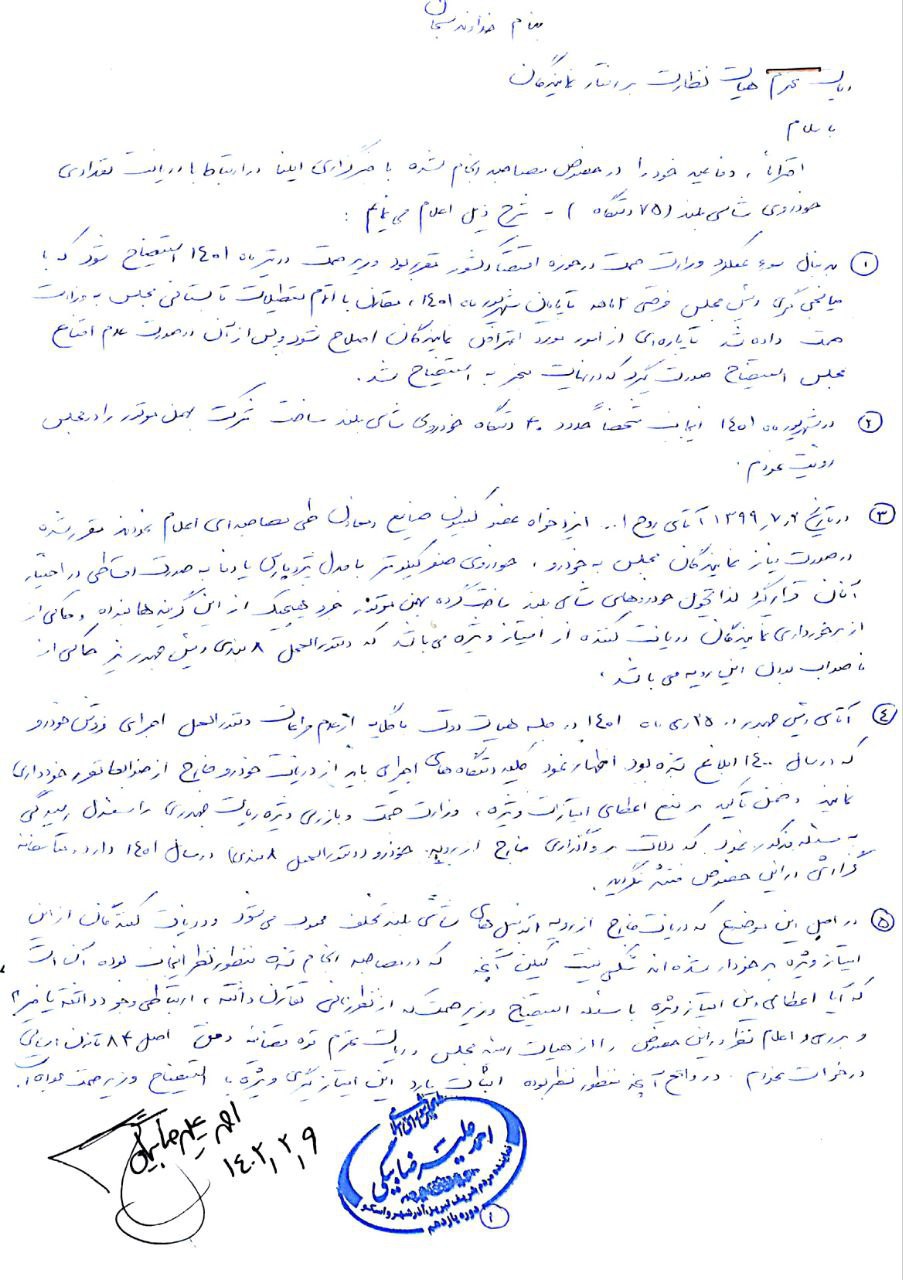 بنام خداوند سبحان
ریاست محترم هیات نظارت بر رفتار نمایندگان
با سلام
احتراماً، دفاعیه خود را در خصوص مصاحبه انجام شده با خبرگزاری ایلنا در ارتباط با دریافت تعدادی
خودروی شاسی بلند (۷۵ دستگاه) به شرح ذیل اعلام می نمایم:
۱ به دنبال سوء عملکرد وزارت صمت در حوزه اقتصاد کشور مقرر بود وزیر صمت در تیر ماه ۱۴۰۱ استیضاح شود که با
میانجی گری رئیس مجلس فرصتی ۲ ماهه تا پایان شهریور ماه ۱۴۰۱، مقارن با اتمام تعطیلات تابستانی مجلس به وزارت
صمت داده شد تا پاره‌ای از امور مورد اعتراض نمایندگان اصلاح شود و پس از آن در صورت عدم اقناع
مجلس استیضاح صورت گیرد که در نهایت منجر به استیضاح شد.
۲ در شهریور ماه ۱۴۰۱ اینجانب شخصاً حدود ۳۰ دستگاه خودروی شاسی بلند ساخت شرکت بهمن موتور را در مجلس
رویت نمودم.
۳ در تاریخ ۱۳۹۹,۷,۲ آقای روح ا... ایزدخواه عضو کمیسیون صنایع و معادن طی مصاحبه‌ای اعلام نمودند مقرر شده
در صورت نیاز نمایندگان مجلس به خودرو، خودروی صفر کیلومتر با مدل تیبا، پارس یا دنا به صورت اقساطی در اختیار
آنان قرار گیرد لذا تحویل خودروهای شاسی بلند ساخت گروه بهمن موتور جزو هیچیک از این گزینه ها نبوده و حاکی از
از برخورداری نمایندگان دریافت کننده از امتیاز ویژه می باشد که دستورالعمل ۸ بندی رئیس جمهور نیز حاکی از
ناصواب بودن این رویه می باشد.
۴ آقای رئیس جمهور در ۲۵ دی ماه ۱۴۰۱ در جلسه هیات دولت با گلایه از عدم مراعات دستورالعمل اجرای فروش خودرو
که در سال ۱۴۰۰ ابلاغ شده بود اظهار نمود کلیه دستگاه های اجرایی باید از دریافت خودرو خارج از ضوابط مقرر خودداری
نمایند و ضمن تأکید بر منع اعطای امتیازات ویژه، وزارت صمت و بازرسی ویژه ریاست جمهوری را مسئول رسیدگی
به مسئله مذکور نمود که دلالت بر واگذاری خارج از رویه خودرو (دستورالعمل ۸ بندی) در سال ۱۴۰۱ دارد. متأسفانه
گزارشی در این خصوص منتشر نگردید.
۵ در اصل این موضوع که دریافت خارج از رویه اتومبیل های شاسی بلند تخلف محسوب می شود و دریافت کنندگان از این
امتیاز ویژه برخوردار شده اند شکی نیست لیکن آنچه که در مصاحبه انجام شده منظور نظر اینجانب بوده آن است
که آیا اعطای این امتیاز ویژه با مسئله استیضاح وزیر صمت که از نظر زمانی تقارن داشته، ارتباطی وجود داشته یا خیر؟
و بررسی و اعلام نظر در این خصوص را از هیات رئیسه مجلس و ریاست محترم قوه قضائیه وفق اصل ۸۴ قانون اساسی
درخواست نمودم. در واقع آنچه منظور نظر بوده اثبات یا رد این امتیازگیری ویژه با استیضاح وزیر صمت بوده است.
احمد علیرضابیگی
۱۴۰۲,۲,۹
مجلس شورای اسلامی
احمد علیرضابیگی
نماینده مردم شریف تبریز، آذرشهر و اسکو
دوره یازدهم
۱